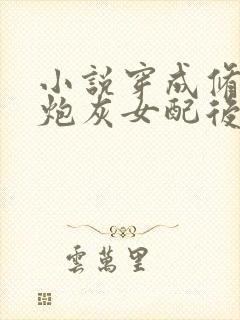 小說穿成脩
炮灰女配後
雲萬里